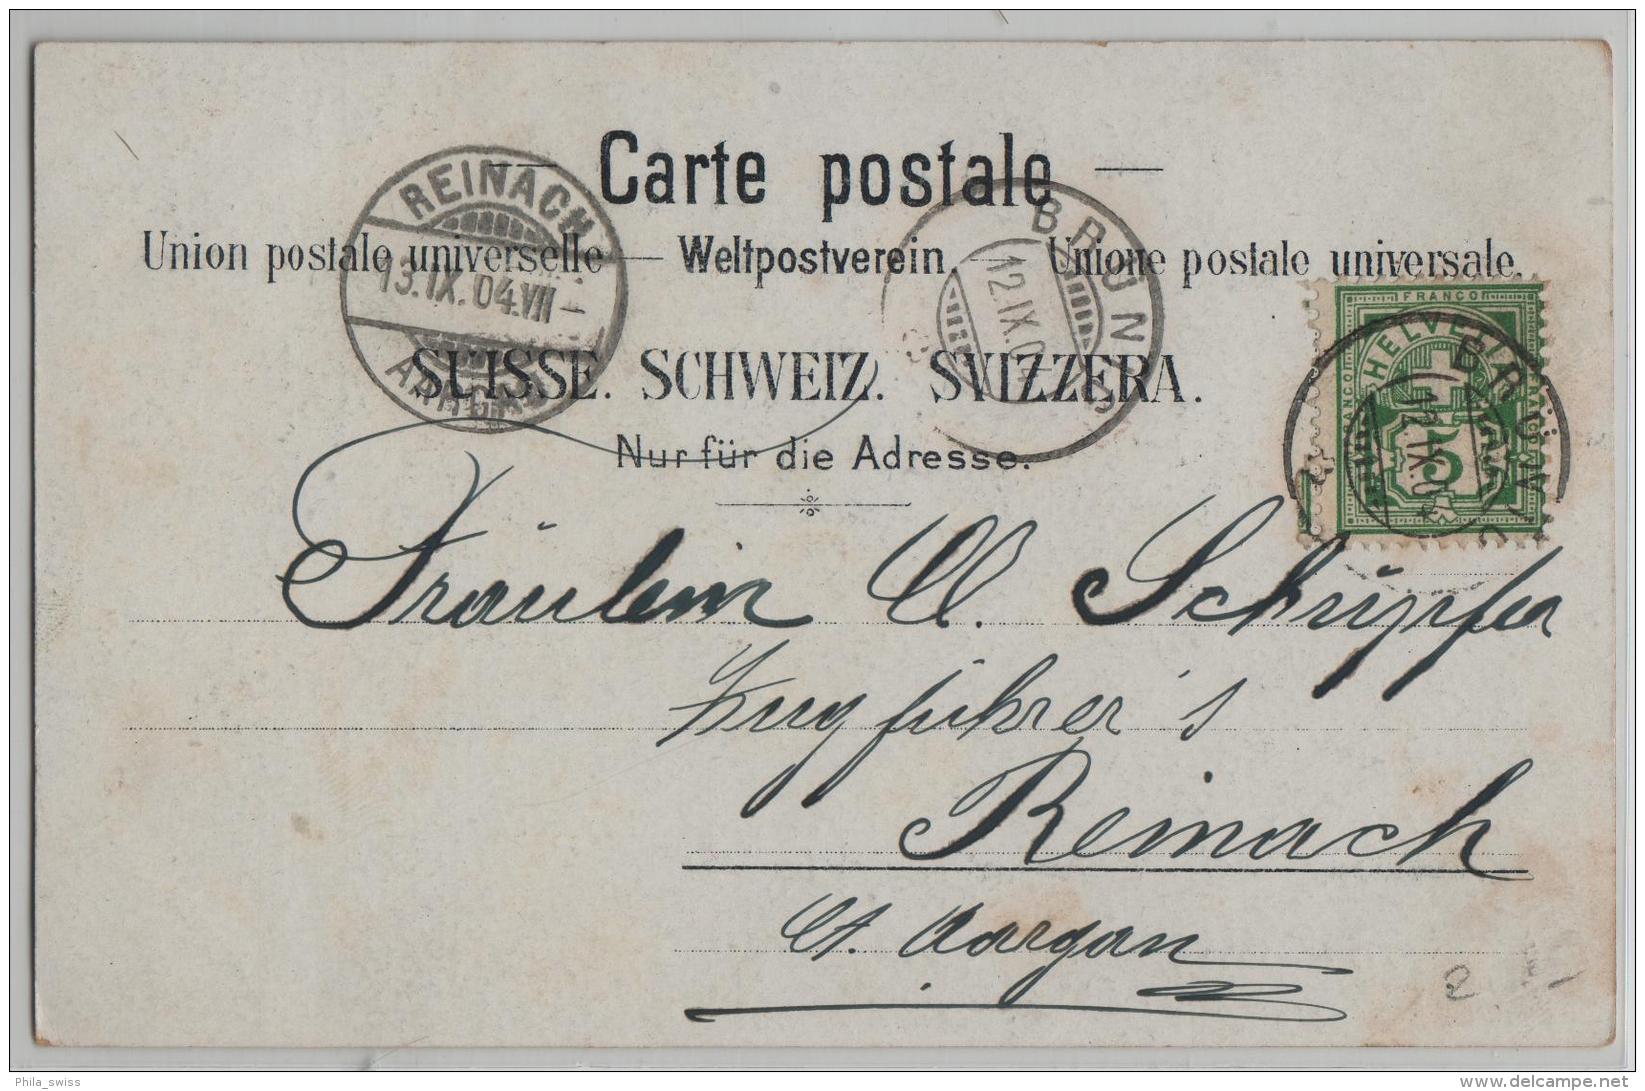 Carte postale
Union postale universelle — Weltpostverein — Unione postale universale.
SUISSE. SCHWEIZ. SVIZZERA.
Nur für die Adresse.
REINACH
13.IX.04.VII-
AARGAU
BRÜNIG
12.IX.04
FRANCO
HELVETIA
FRANCO
FRANCO
5
BRÜNIG
12.IX.04
Fräulein Schüpfer
Zugführer's
Reinach
Ct. Aargau
2
Phila_swiss
delcampe.net